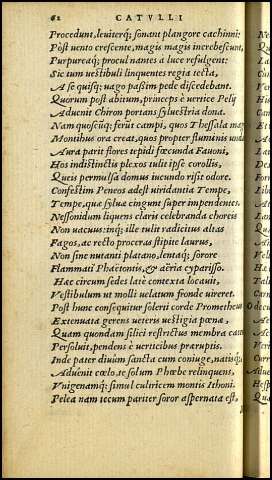 62 CATVLLI
Procedunt, leuiterq́; sonant plangore cachinni:
Pòst uento crescente, magis magis increbescunt,
Purpureaq́; procul nantes a luce refulgent:
Sic tum uestibuli linquentes regia tecta,
A se quisq; uago passim pede discedebant.
Quorum post abitum, princeps è uertice Pelij
Aduenit Chiron portans syluestria dona.
Nam quoscũq; ferũt campi, quos Thessala mag
Montibus ora creat, quos propter fluminis und
Aura parit flores tepidi fœcunda Fauoni,
Hos indistinctis plexos tulit ipse corollis,
Queis permulsa domus iucundo risit odore.
Confestim Peneos adest uiridantia Tempe,
Tempe, quæ syluæ cingunt super impendentes.
Nessonidum liquens claris celebranda choreis
Non uacuus: inq́; ille tulit radicitus altas
Fagos, ac recto proceras stipite laurus,
Non sine nutanti platano, lentaq́; sorore
Flammati Phaëtontis, & aëria cyparisso.
Hæc circum sedes latè contexta locauit,
Vestibulum ut molli uelatum fronde uireret.
Post hunc consequitur solerti corde Prometheus
Extenuata gerens ueteris uestigia pœnæ,
Quam quondam silici restrictus membra cate
Persoluit, pendens è uerticibus præruptis.
Inde pater diuûm sancta cum coniuge, natisq́
Aduênit cœlo, te solum Phœbe relinquens,
Vnigenamq́; simul cultricem montis Ithoni.
Pelea nam tecum pariter soror aspernata est,